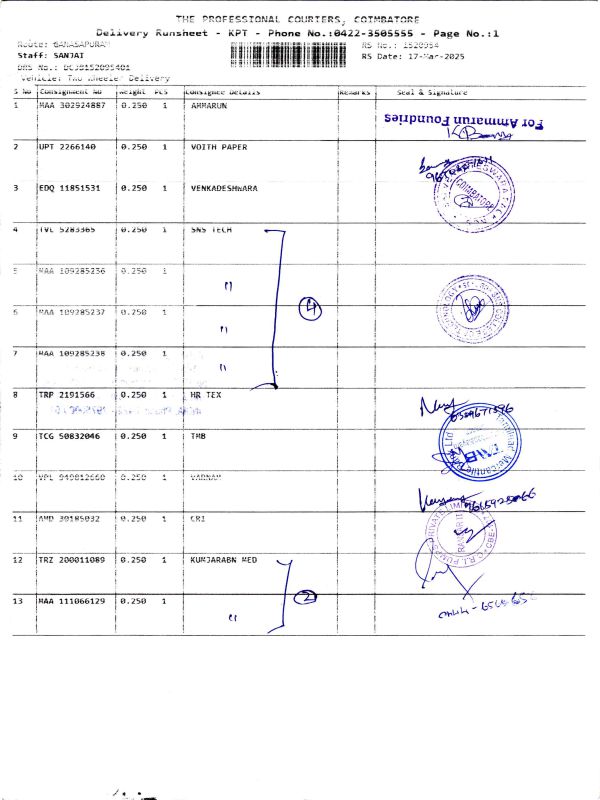 THE PROFESSIONAL COURIERS, COIMBATORE
Delivery Runsheet - KPT - Phone No.:0422-3505555 - Page No.:1
Route: GANASAPURAM
RS No.: 1520954
Staff: SANJAI
RS Date: 17-Mar-2025
DRS No.:
Vehicle: Two Wheeler Delivery
S No Consignment No Weight Pcs Consignee Details Remarks Seal & Signature
1 MAA 302924887 0.250 1 AMMARUN
For Ammarun Foundries
2 UPT 2266140 0.250 1 VOITH PAPER
3 EDQ 11851531 0.250 1 VENKADESHWARA
COIMBATORE
4 TVL 5283365 0.250 1 SNS TECH
5 MAA 109285236 0.250 1 "
4
6 MAA 109285237 0.250 1 "
7 MAA 109285238 0.250 1 "
8 TRP 2191566 0.250 1 HR TEX
9 TCG 50832046 0.250 1 TMB
Tamilnad Mercantile Bank Ltd
TMB
10 VPL 940812660 0.250 1 VARNAM
11 AMD 30185032 0.250 1 CRI
C.R.I. PUMPS PRIVATE LIMITED
12 TRZ 200011089 0.250 1 KUMJARABN MED
2
13 MAA 111066129 0.250 1 "